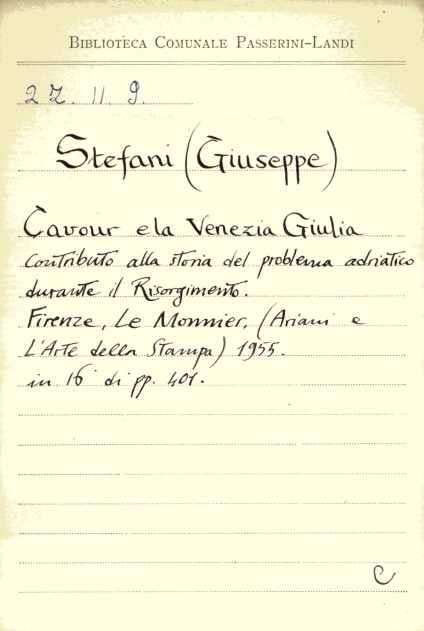 BIBLIOTECA COMUNALE PASSERINI-LANDI
2Z. 11. 9.
Stefani (Giuseppe)
Cavour e la Venezia Giulia
Contributo alla storia del problema adriatico
durante il Risorgimento.
Firenze, Le Monnier, (Ariani e
L'Arte della Stampa) 1955.
in 16° di pp. 401.
C